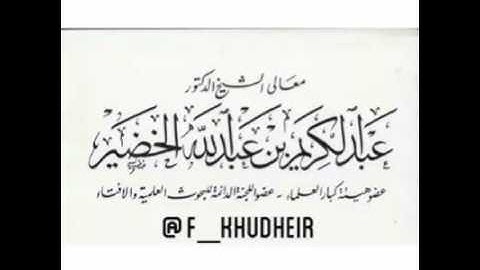 معالي الشيخ الدكتور
عبد الكريم بن عبد الله الخضير
عضو هيئة كبار العلماء - عضو اللجنة الدائمة للبحوث العلمية والافتاء
@F_KHUDHEIR